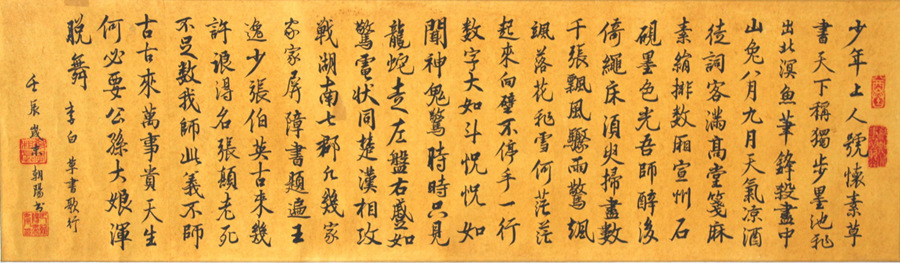 少年上人號懷素草
書天下稱獨步墨池飛
出北溟魚筆鋒殺盡中
山兔八月九月天氣涼酒
徒詞客滿高堂箋麻
素絹排數廂宣州石
硯墨色光吾師醉後
倚繩床須臾掃盡數
千張飄風驟雨驚颯
颯落花飛雪何茫茫
起來向壁不停手一行
數字大如斗怳怳如
聞神鬼驚時時只見
龍蛇走左盤右蹙如
驚電狀同楚漢相攻
戰湖南七郡凡幾家
家家屏障書題遍王
逸少張伯英古來幾
許浪得名張顛老死
不足數我師此義不師
古古來萬事貴天生
何必要公孫大娘渾
脫舞 李白 草書歌行
壬辰歲末 朝陽書